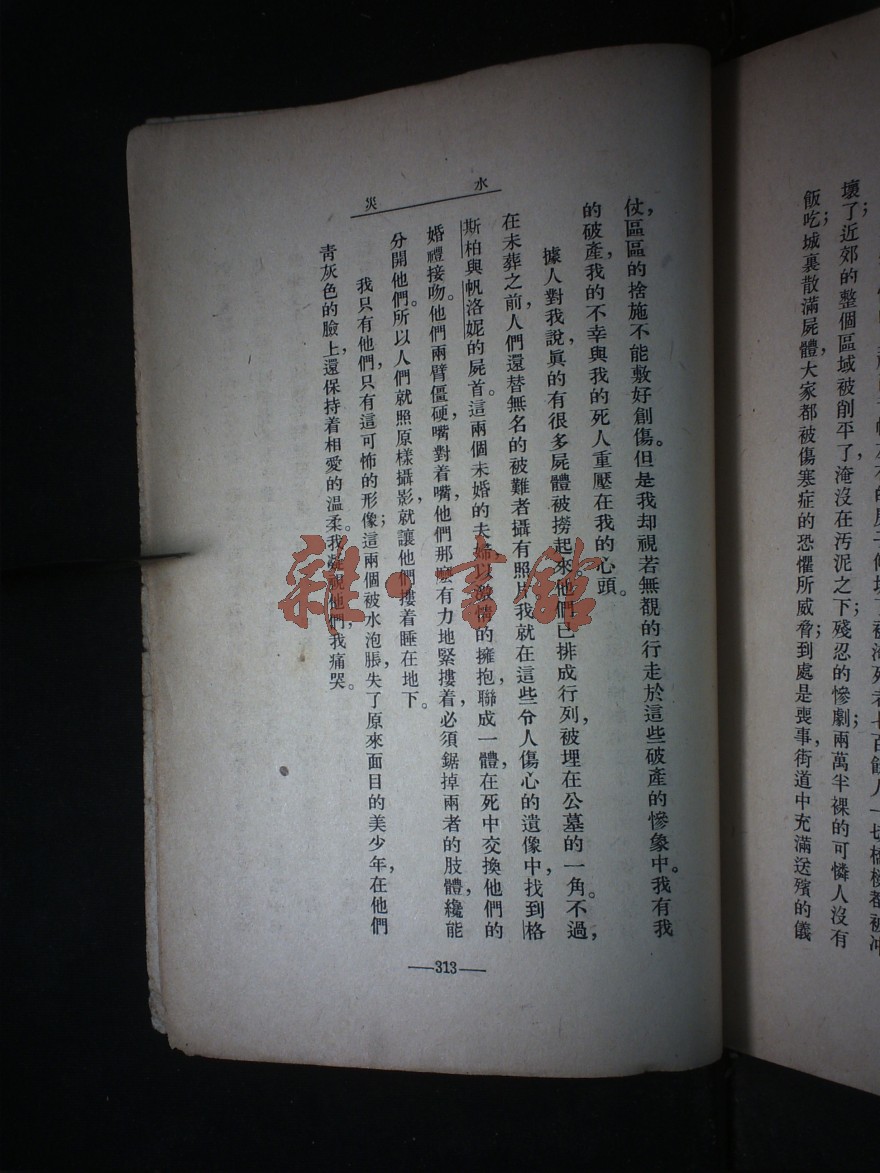 壞了；近郊的整個區域被削平了，淹沒在汚泥之下；殘忍的慘劇；兩萬半裸的可憐人沒有
飯吃；城裏散滿屍體，大家都被傷寒症的恐懼所威脅；到處是喪事，街道中充滿送殯的儀
水災
仗，區區的捨施不能敷好創傷。但是我却視若無覩的行走於這些破產的慘象中。我有我
的破產，我的不幸與我的死人重壓在我的心頭。
據人對我說，眞的有很多屍體被撈起來，他們已排成行列，被埋在公墓的一角。不過，
在未葬之前，人們還替無名的被難者攝有照片。我就在這些令人傷心的遺像中，找到格
斯柏與帆洛妮的屍首。這兩個未婚的夫婦，以激情的擁抱，聯成一體，在死中交換他們的
婚禮接吻。他們兩臂僵硬，嘴對着嘴，他們那麼有力地緊摟着，必須鋸掉兩者的肢體，纔能
分開他們。所以人們就照原樣攝影，就讓他們摟着睡在地下。
我只有他們，只有這可怖的形像；這兩個被水泡脹，失了原來面目的美少年，在他們
青灰色的臉上，還保持着相愛的温柔。我凝視他們，我痛哭。
—313—
雜·書館